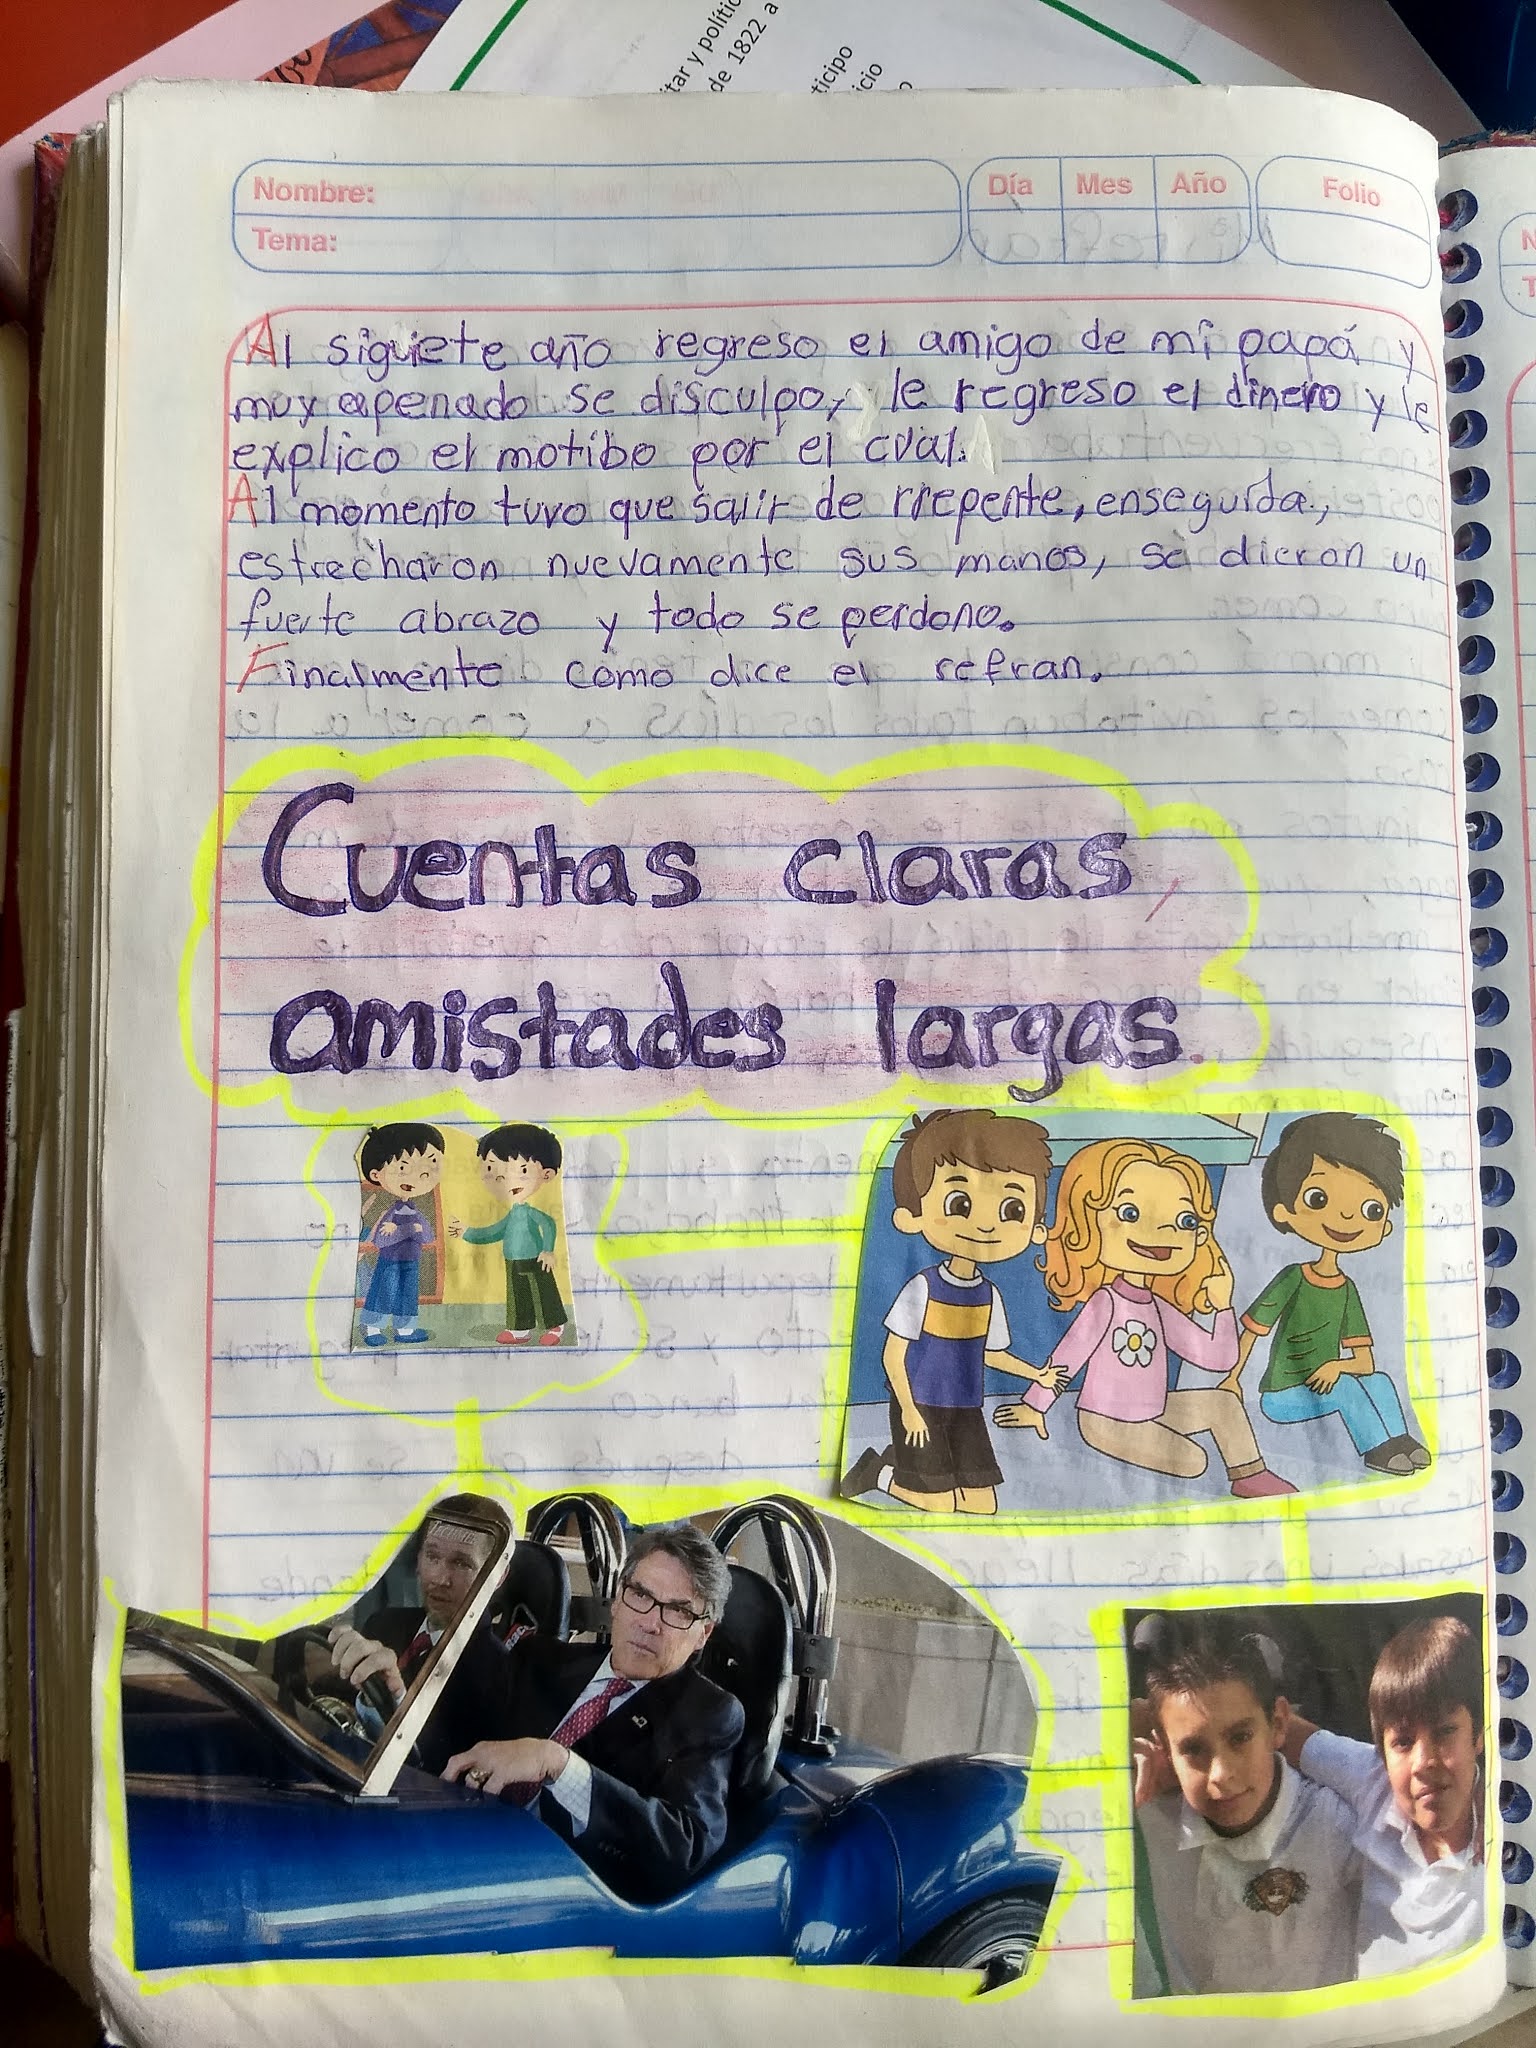 tar y polític
de 1822 a
ticipo
icio
o
Nombre:
Tema:
Día Mes Año
Folio
Al siguiete año regreso el amigo de mi papá y
muy apenado se disculpo, le regreso el dinero y le
explico el motibo por el cual.
Al momento tuvo que salir de rrepente, enseguida,
estrecharon nuevamente sus manos, se dieron un
fuerte abrazo y todo se perdono.
Finalmente como dice el refran.
Cuentas claras,
amistades largas.
N
T